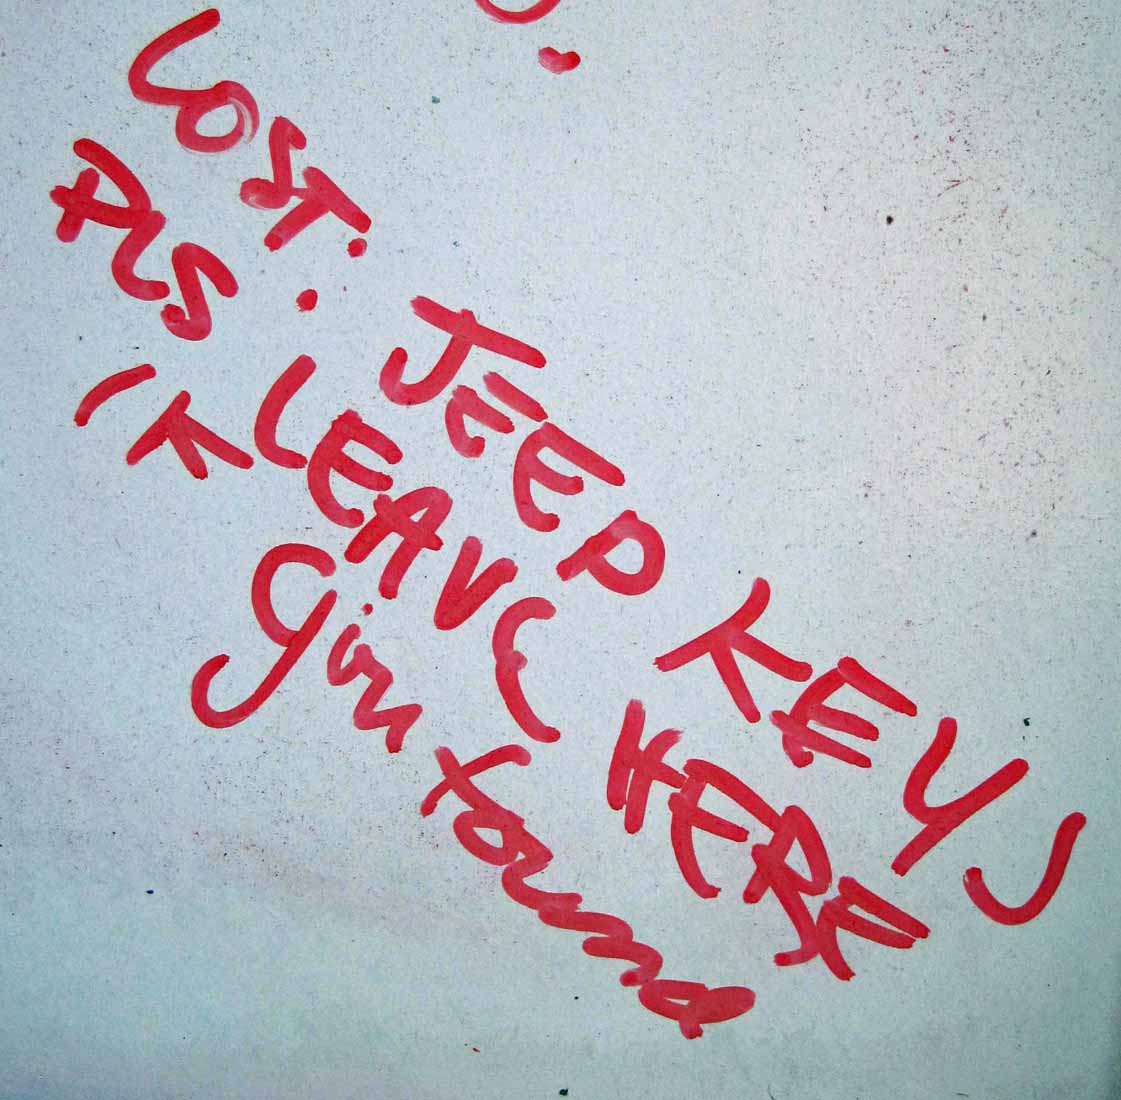 LOST: JEEP KEYS
PLS LEAVE HERE
IF Gin found